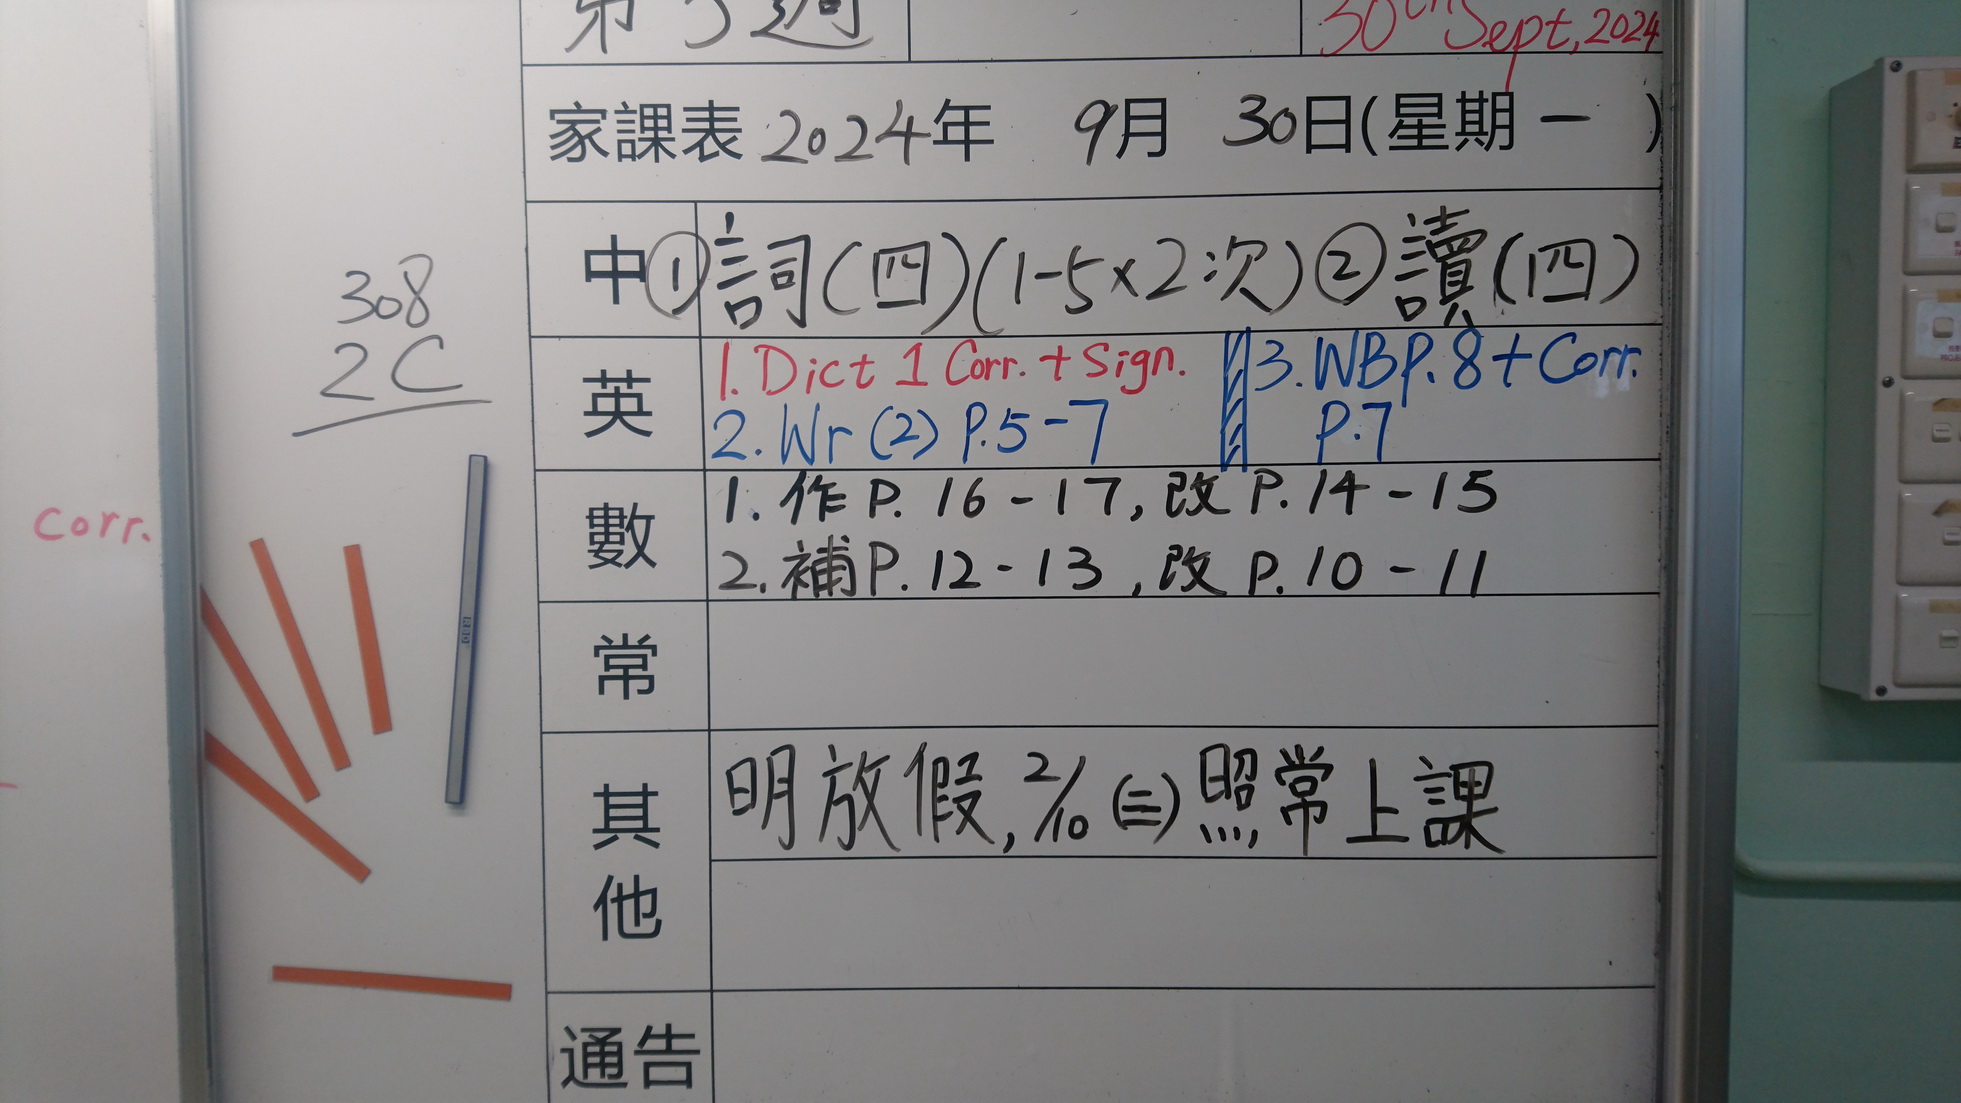 第5週
30th Sept, 2024
家課表 2024年 9月 30日(星期一 )
中 ① 詞(四)(1-5×2次) ② 讀(四)
英
1. Dict 1 Corr. + Sign.
2. Wr (2) P.5-7
3. WB P.8 + Corr.
P.7
數
1. 作 P. 16-17, 改 P. 14-15
2. 補 P. 12-13, 改 P. 10-11
常
其他
明放假, 2/10 (三) 照常上課
通告
308
2C
Corr.